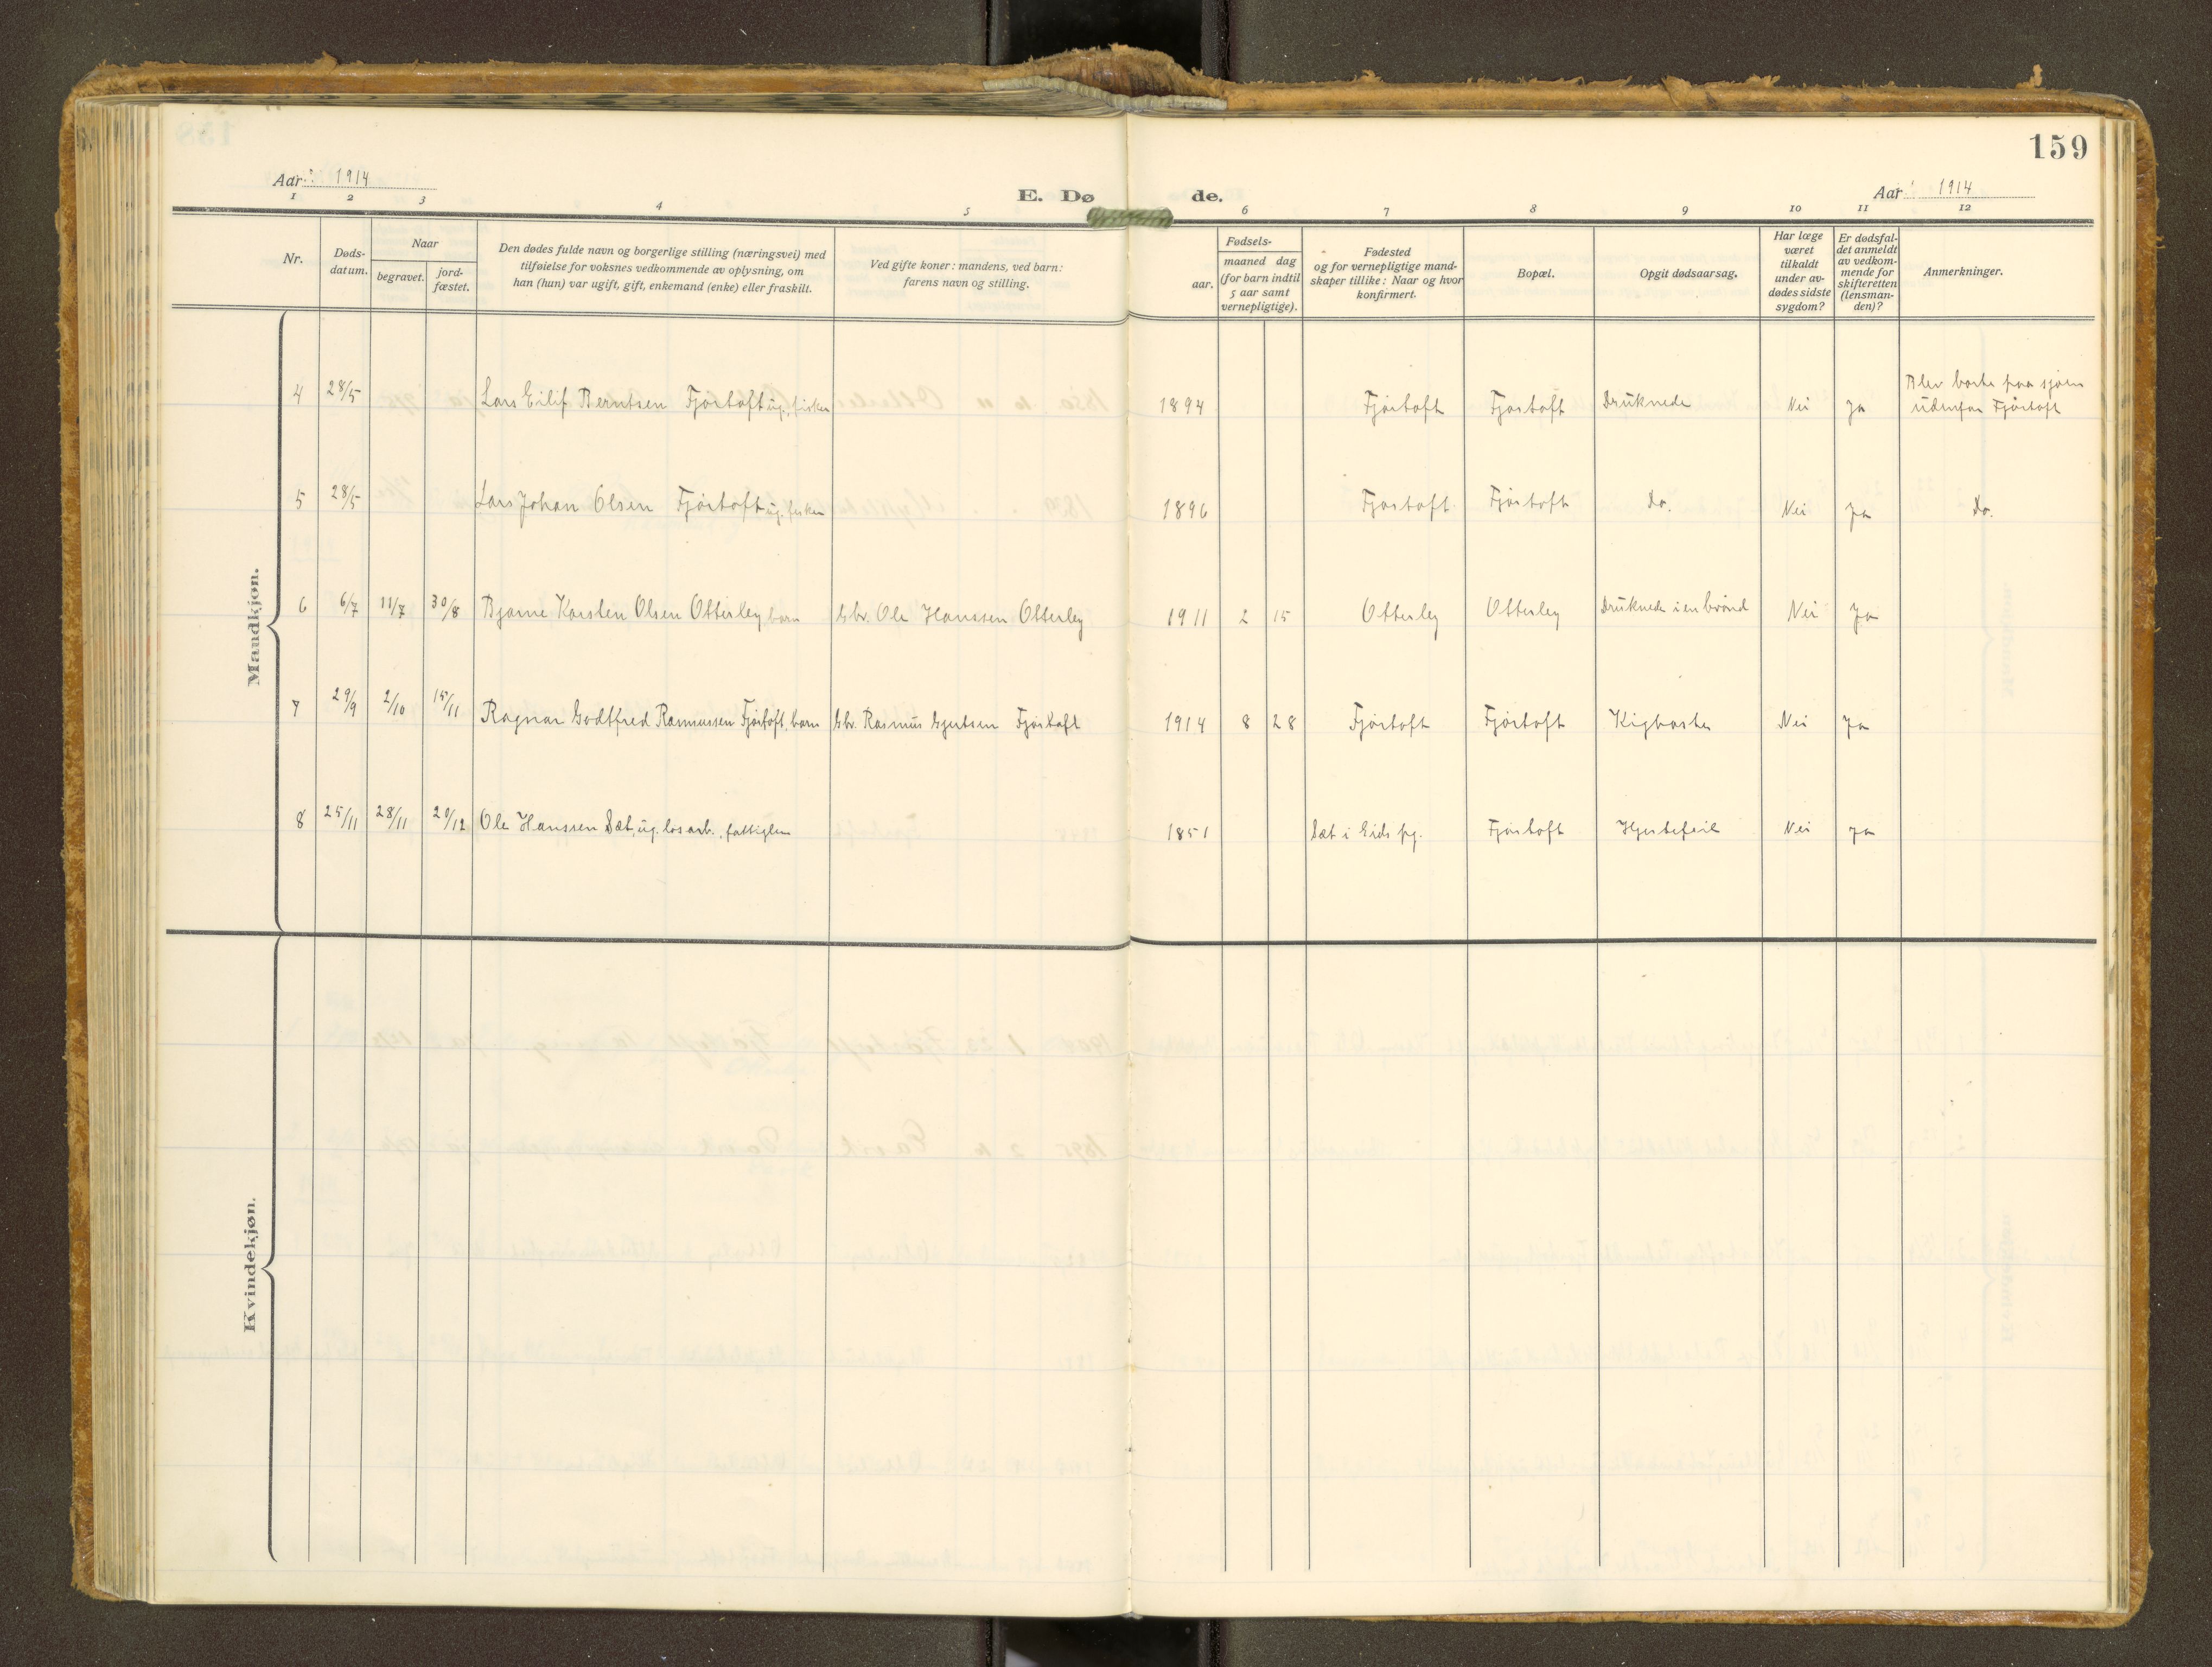 159
Aar: 1914
E. Døde.
Aar: 1914
1 2 3 4 5 6 7 8 9 10 11 12
Nr.
Døds-
datum.
Naar
begravet.
jord-
fæstet.
Den dødes fulde navn og borgerlige stilling (næringsvei) med
tilføielse for voksnes vedkommende av oplysning, om
han (hun) var ugift, gift, enkemand (enke) eller fraskilt.
Ved gifte koner: mandens, ved barn:
farens navn og stilling.
Fødsels-
aar.
maaned dag
(for barn indtil
5 aar samt
vernepligtige).
Fødested
og for vernepligtige mand-
skaper tillike: Naar og hvor
konfirmert.
Bopæl.
Opgit dødsaarsag.
Har læge
været
tilkaldt
under av-
dødes sidste
sygdom?
Er dødsfal-
det anmeldt
av vedkom-
mende for
skifteretten
(lensman-
den)?
Anmerkninger.
Mandkjøn.
4 28/5 Lars Eilif Berntsen Fjørtoft ug. fisker 1894 Fjørtoft Fjørtoft Druknede Nei Ja Blev borte paa sjøen
udenfor Fjørtoft
5 28/5 Lars Johan Olsen Fjørtoft ug. fisker 1896 Fjørtoft Fjørtoft Do. Nei Ja Do.
6 6/7 11/7 30/8 Bjarne Karsten Olsen Otterley barn Gbr. Ole Hanssen Otterley 1911 2 15 Otterley Otterley Druknede i en brønd Nei Ja
7 29/9 2/10 15/11 Ragnar Godtfred Rasmussen Fjørtoft, barn Gbr. Rasmus Gjertsen Fjørtoft 1914 8 28 Fjørtoft Fjørtoft Kighoste Nei Ja
8 25/11 28/11 20/12 Ole Hanssen Sæt, ug. løsarb., fattiglem 1851 Sæt i Eids pg. Fjørtoft Hjertefeil Nei Ja
Kvindekjøn.